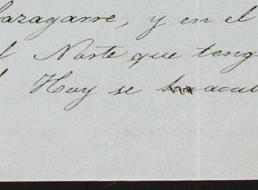 zaragarre, y en el
l Norte que teng
l Hoy se ha acab